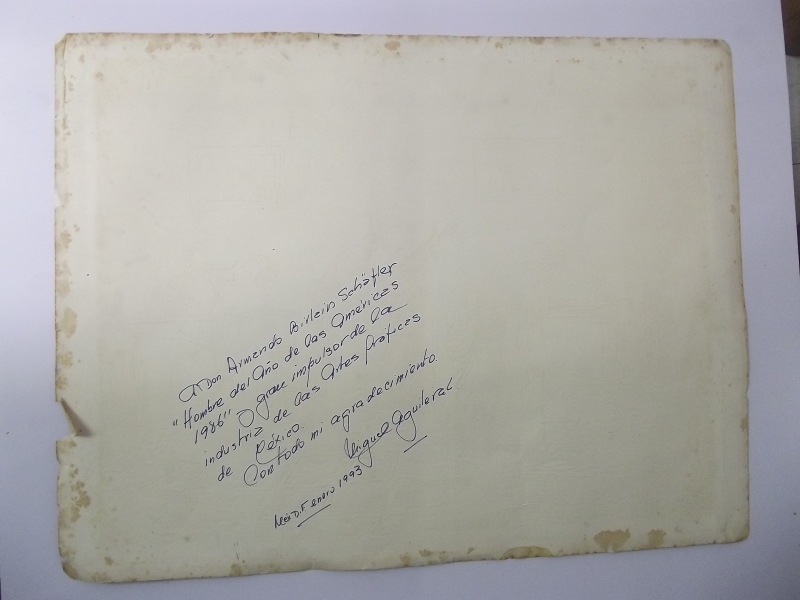 A Don Armando Birlain Schäfler
"Hombre del Año de las Américas
1986" Y gran impulsor de la
industria de las Artes Gráficas
de México.
Con todo mi agradecimiento.
Miguel Aguilera C
Méx D.F. enero 1993